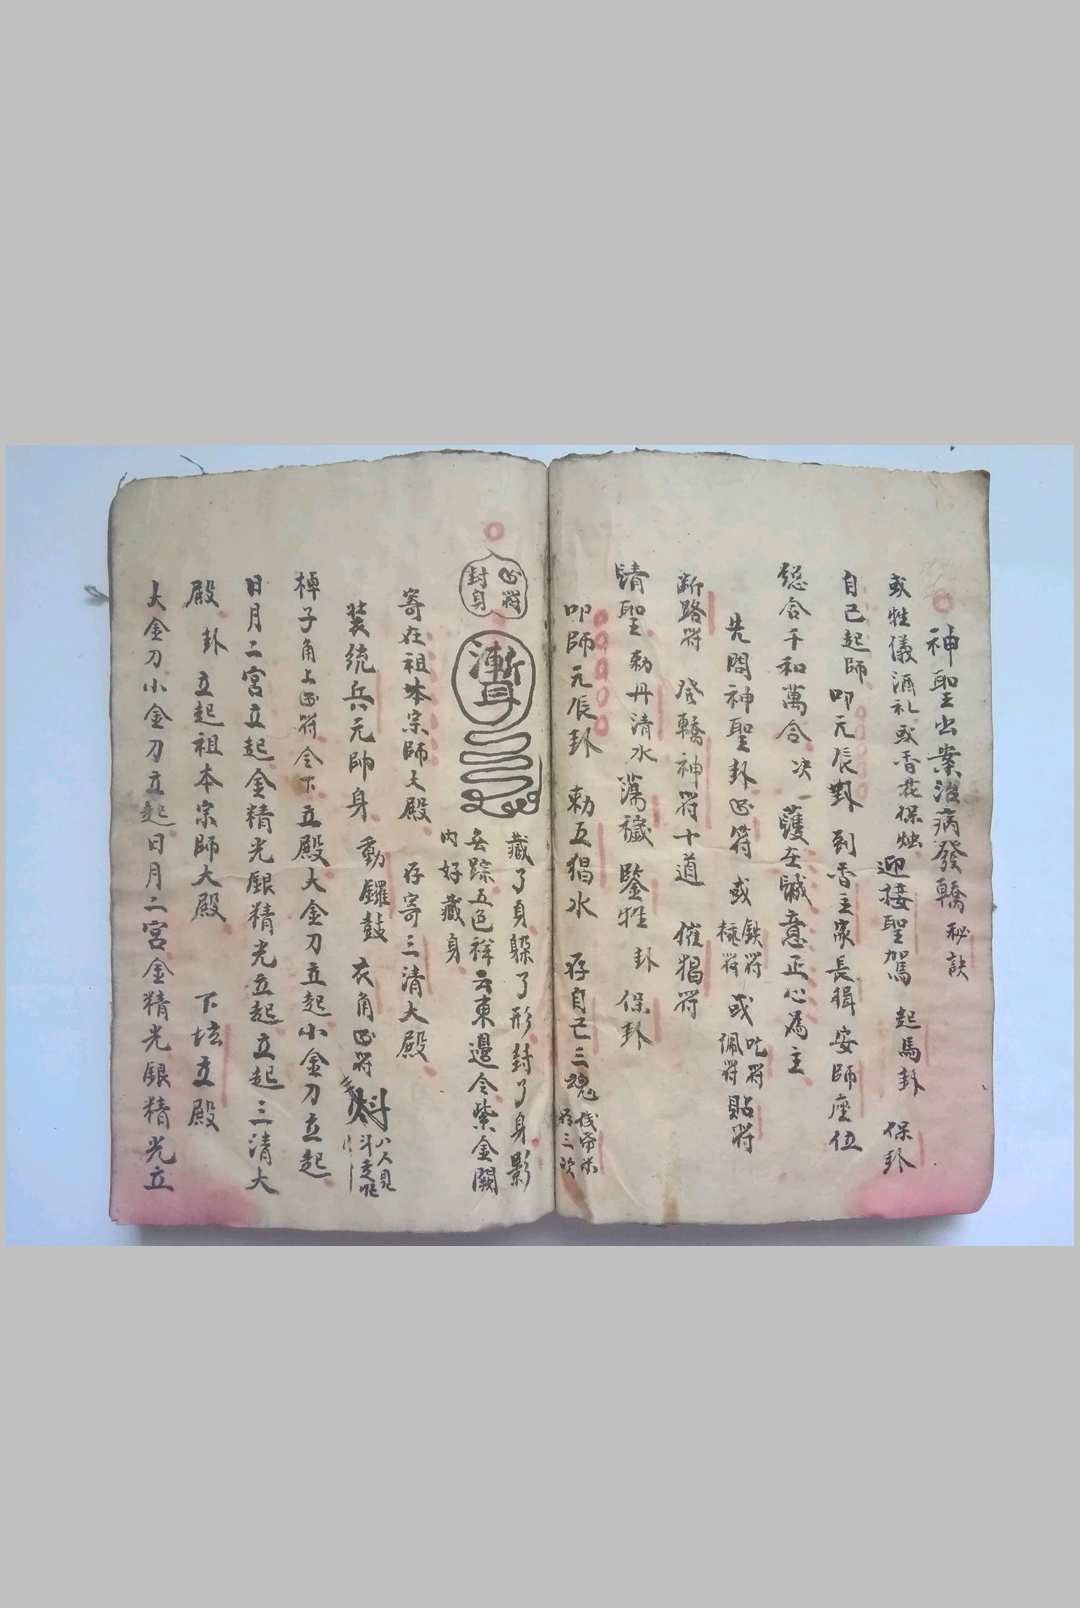 神聖出案治病發轎秘訣
或牲儀酒礼或香花保烛迎接聖駕 起馬卦 保卦
自己起師叩元辰卦 到香主家長揖安師座位
総合千和萬合决 護在誠意正心為主
先問神聖卦 符 或鉄符 符 或吐符佩符貼符
断路符 發轎神符十道 催猖符
請聖勅丹清水蕩穢鑒牲 卦 保卦
叩師元辰卦 勅五猖水 存自己三魂 存三次
藏了身躲了形封了身影
無踪五色祥云東邊令紫金闕
内好藏身
符 封身
漸耳
寄在祖本宗師大殿 存寄三清大殿
装统兵元帥身 動鑼鼓 衣角 符
棹子角上 符令下立殿大金刀立起小金刀立起
日月二宮立起金精光銀精光立起立起三清大
殿 卦 立起祖本宗師大殿 下坛立殿
大金刀小金刀立起日月二宮金精光銀精光立